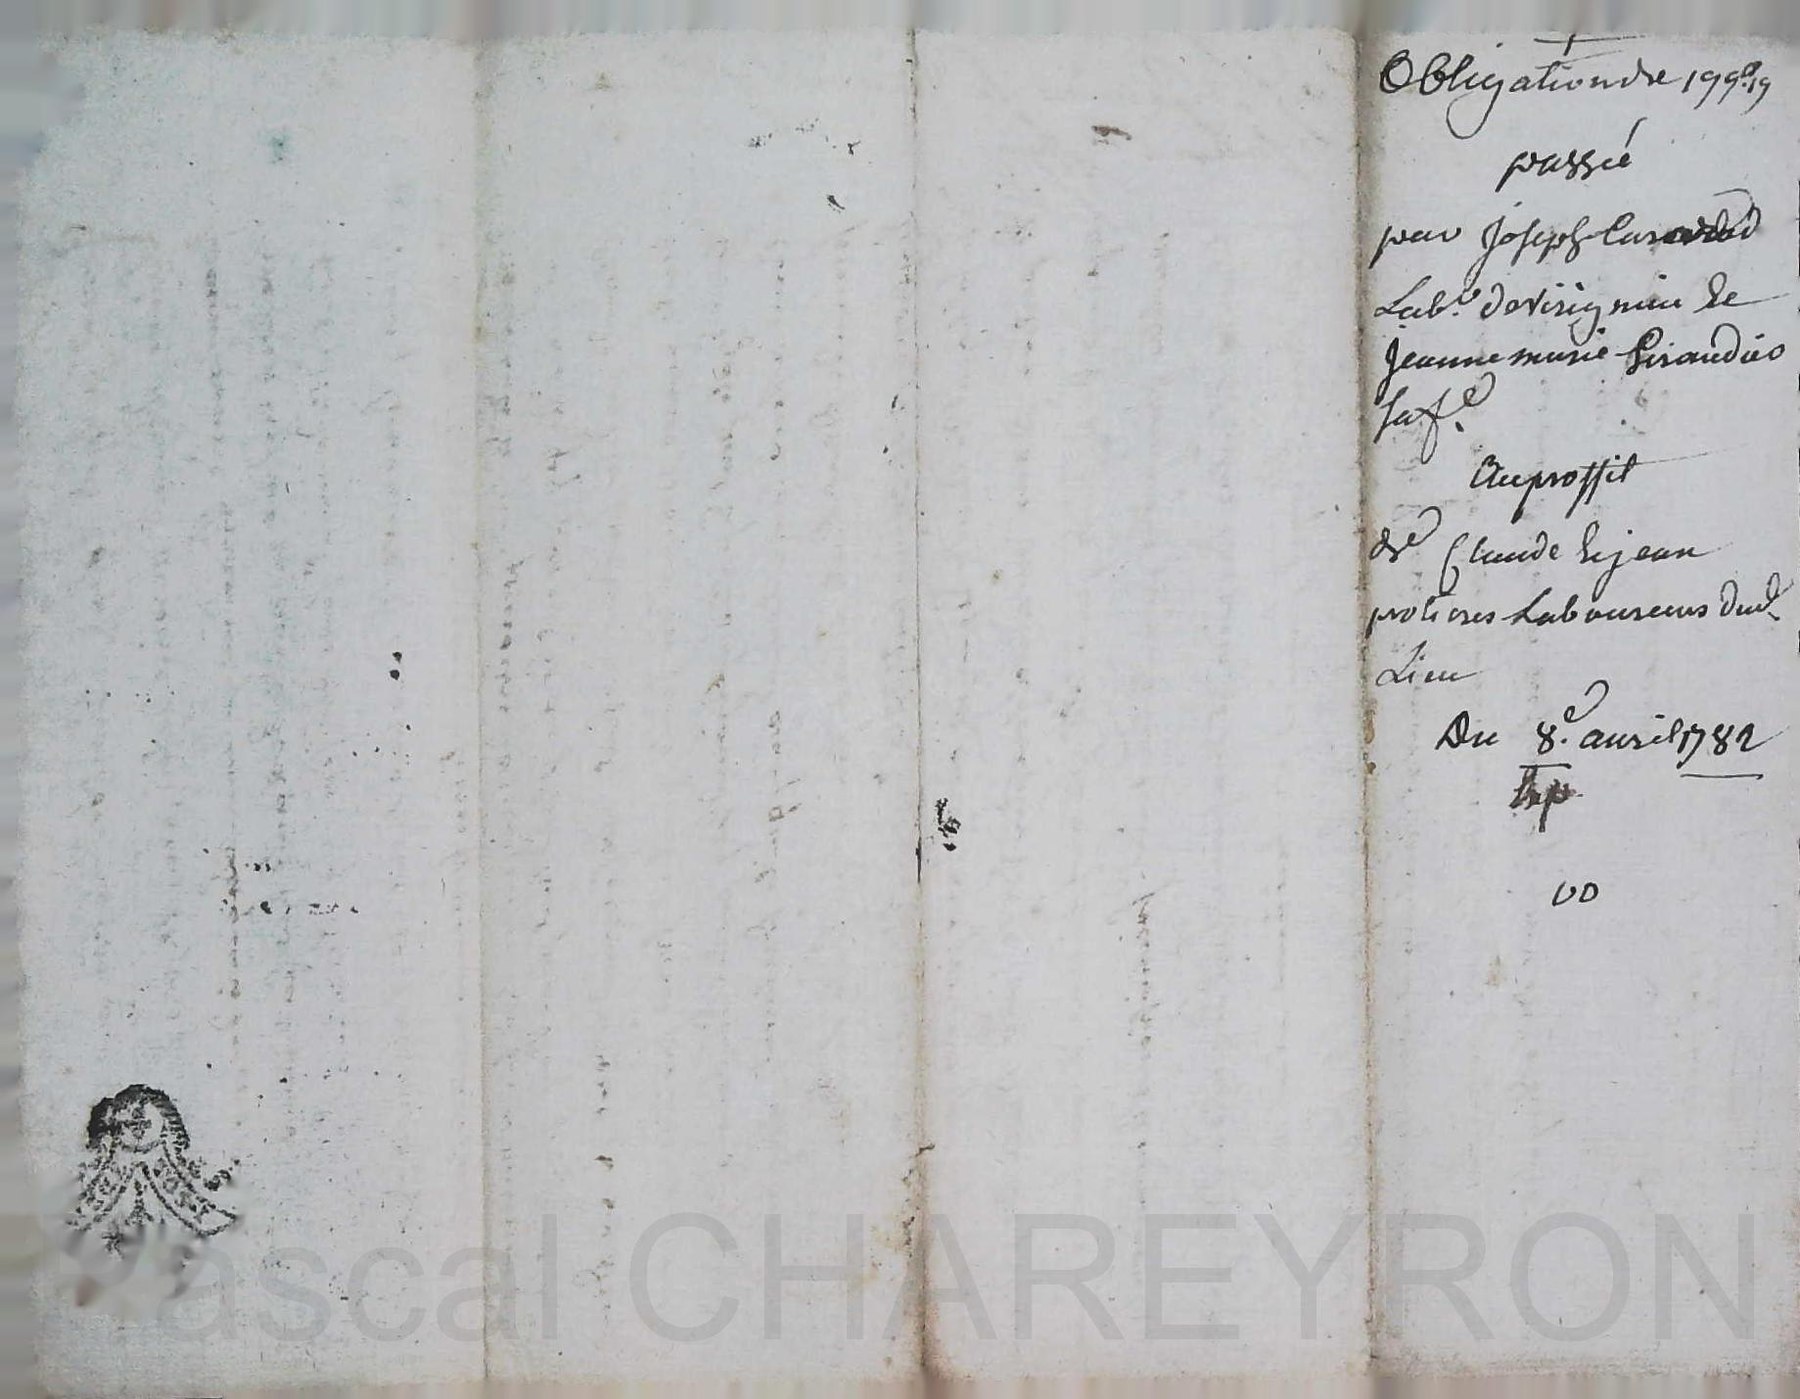 Obligation de 199# 19
passée
par Joseph
Lab.r de virignin &
Jeanne marie Girandier
sa f.e
Au proffit
de Claude & jean
Laboureurs dud.
Lieu
Du 8.e avril 1782
exp
00
Pascal CHAREYRON